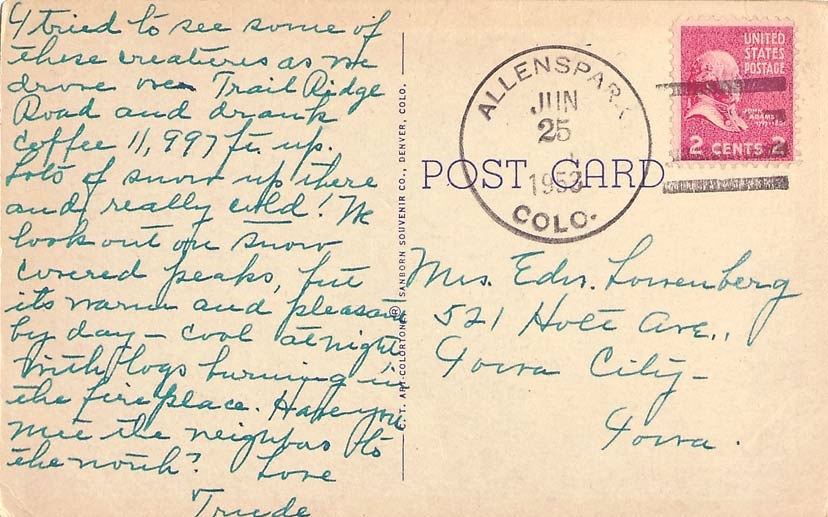 I tried to see some of
these creatures as we
drove over Trail Ridge
Road and drank
coffee 11,997 ft. up.
Lots of snow up there
and really cold! We
look out on snow
covered peaks, but
its warm and pleasant
by day – cool at night
with logs burning in
the fireplace. Have you
met the neighbors to
the north? Love
Trude
C. T. ART-COLORTONE ® SANBORN SOUVENIR CO., DENVER, COLO.
POST CARD
ALLENSPARK
JUN
25
1953
COLO.
UNITED
STATES
POSTAGE
JOHN
ADAMS
2 CENTS 2
Mrs. Edw. Lowenberg
521 Holt Ave.,
Iowa City –
Iowa.